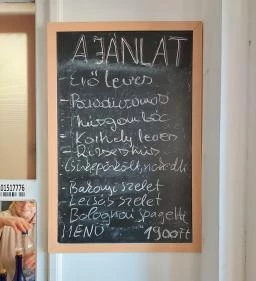 AJÁNLAT
- Erő leves
- Paradicsomos
húsgombóc
- Karhely leves
- Rizseshús
- Csirkepörkölt, nokedli
- Bakonyi szelet
Lecsós szelet
Bolognai spagetti
MENÜ 1900Ft
01517776